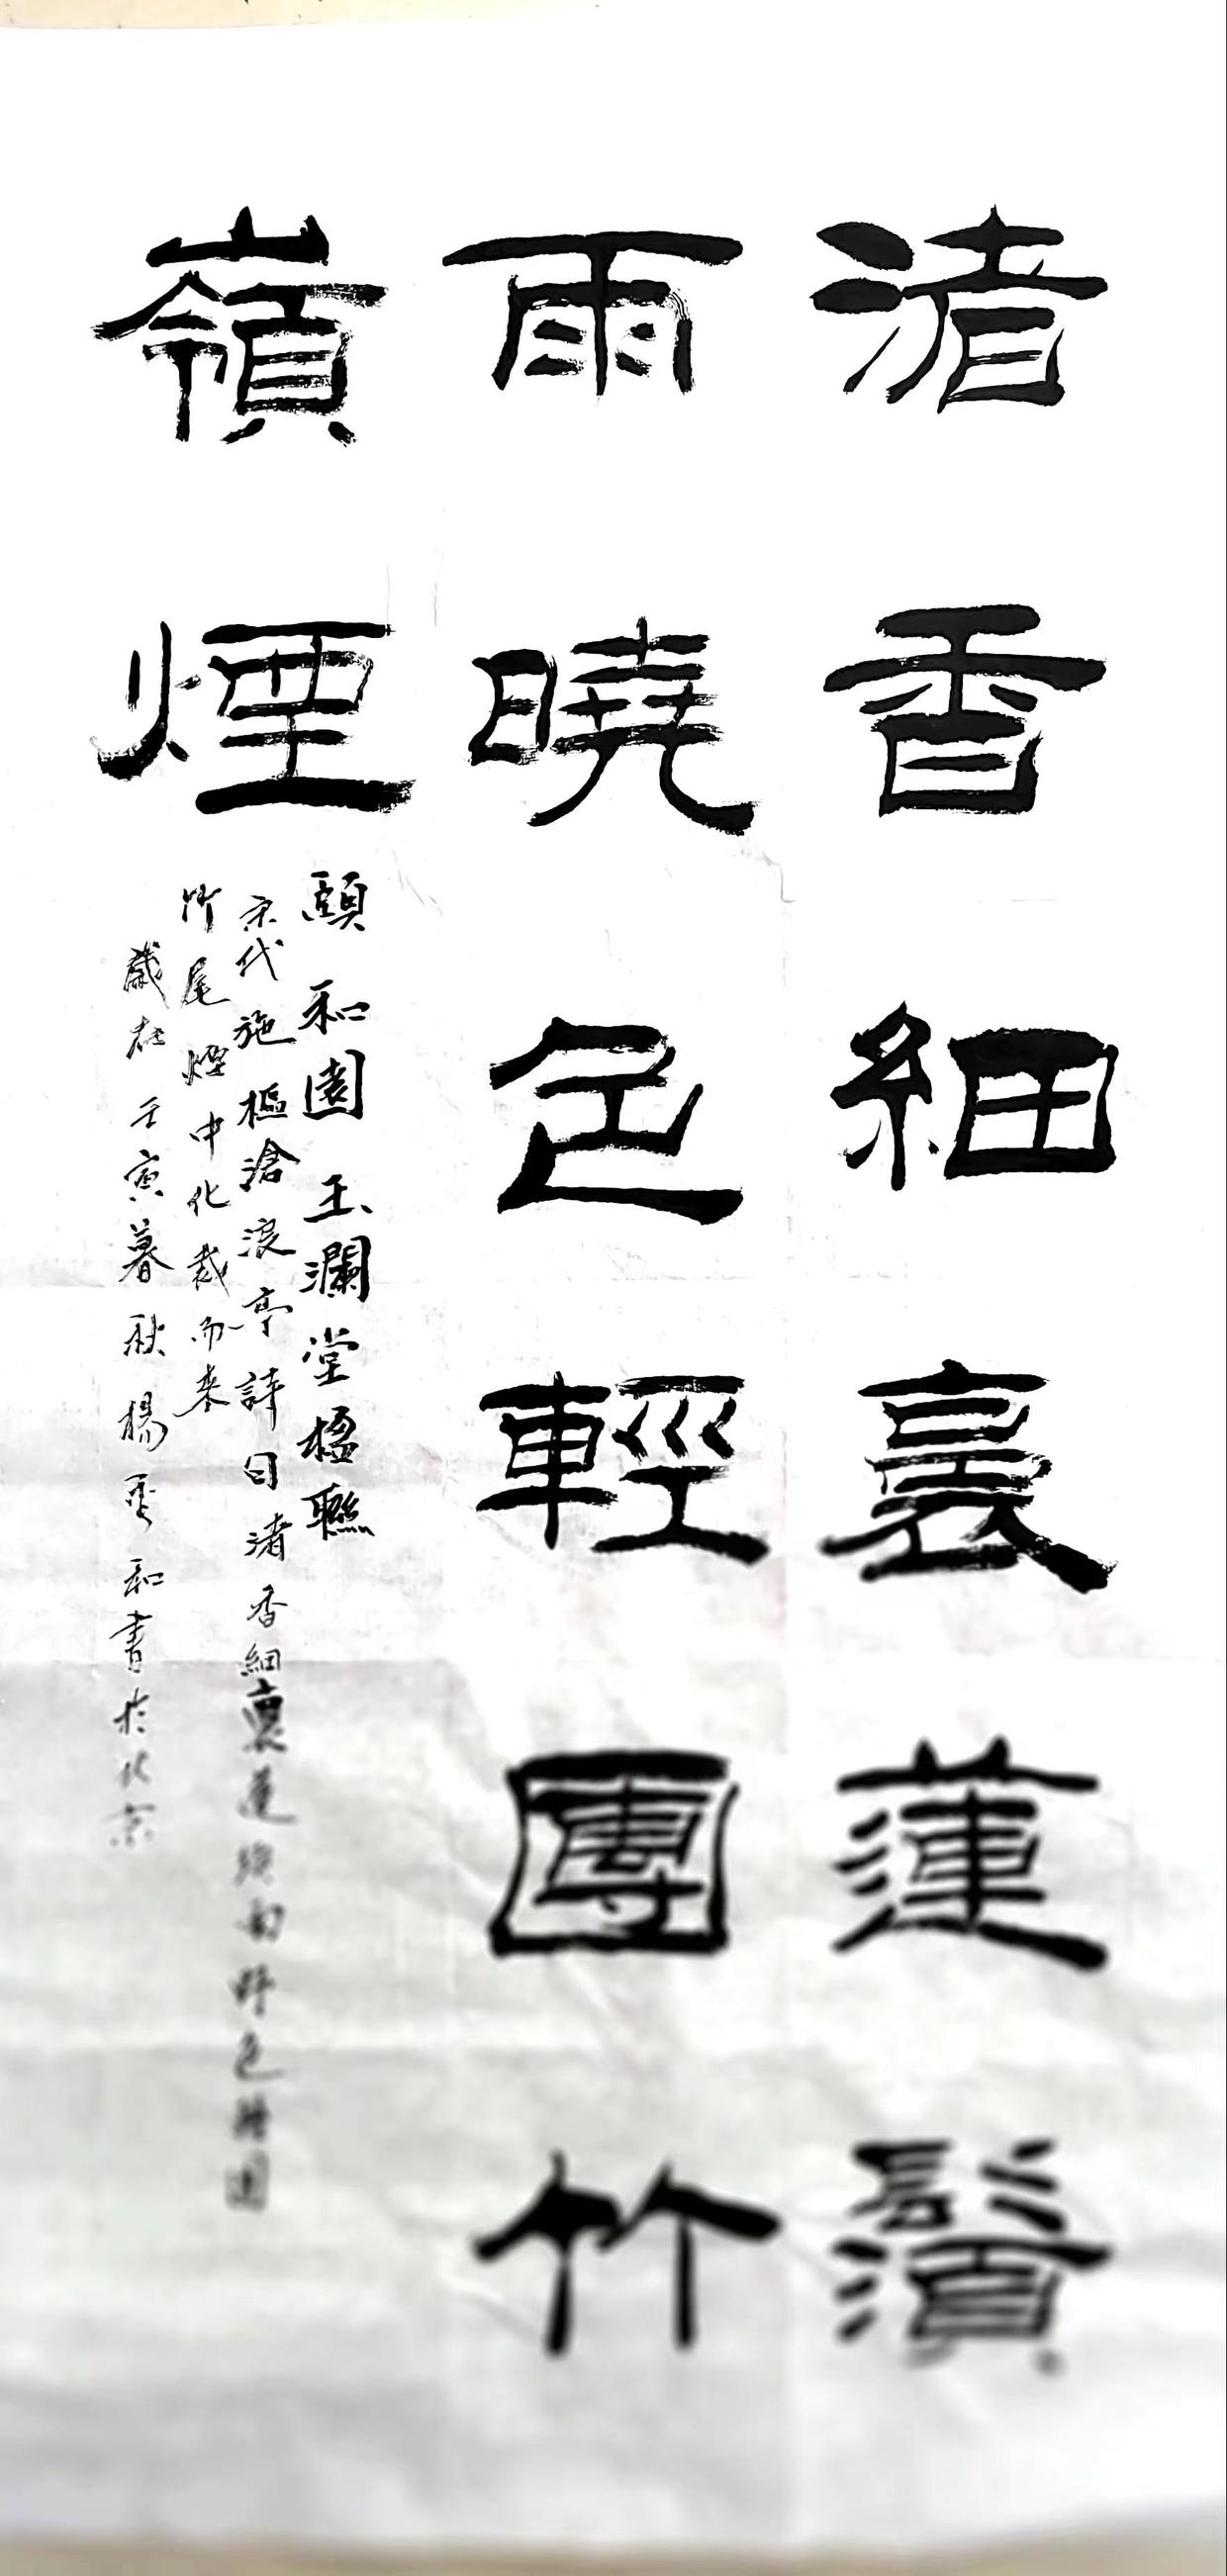 渚香細裛蓮鬚
雨曉色輕團竹
嶺煙
頤和園玉瀾堂楹聯
宋代施樞滄浪亭詩曰渚香細裛蓮雨野色
竹尾煙中化裁而來
歲在壬寅暮秋楊和書於北京